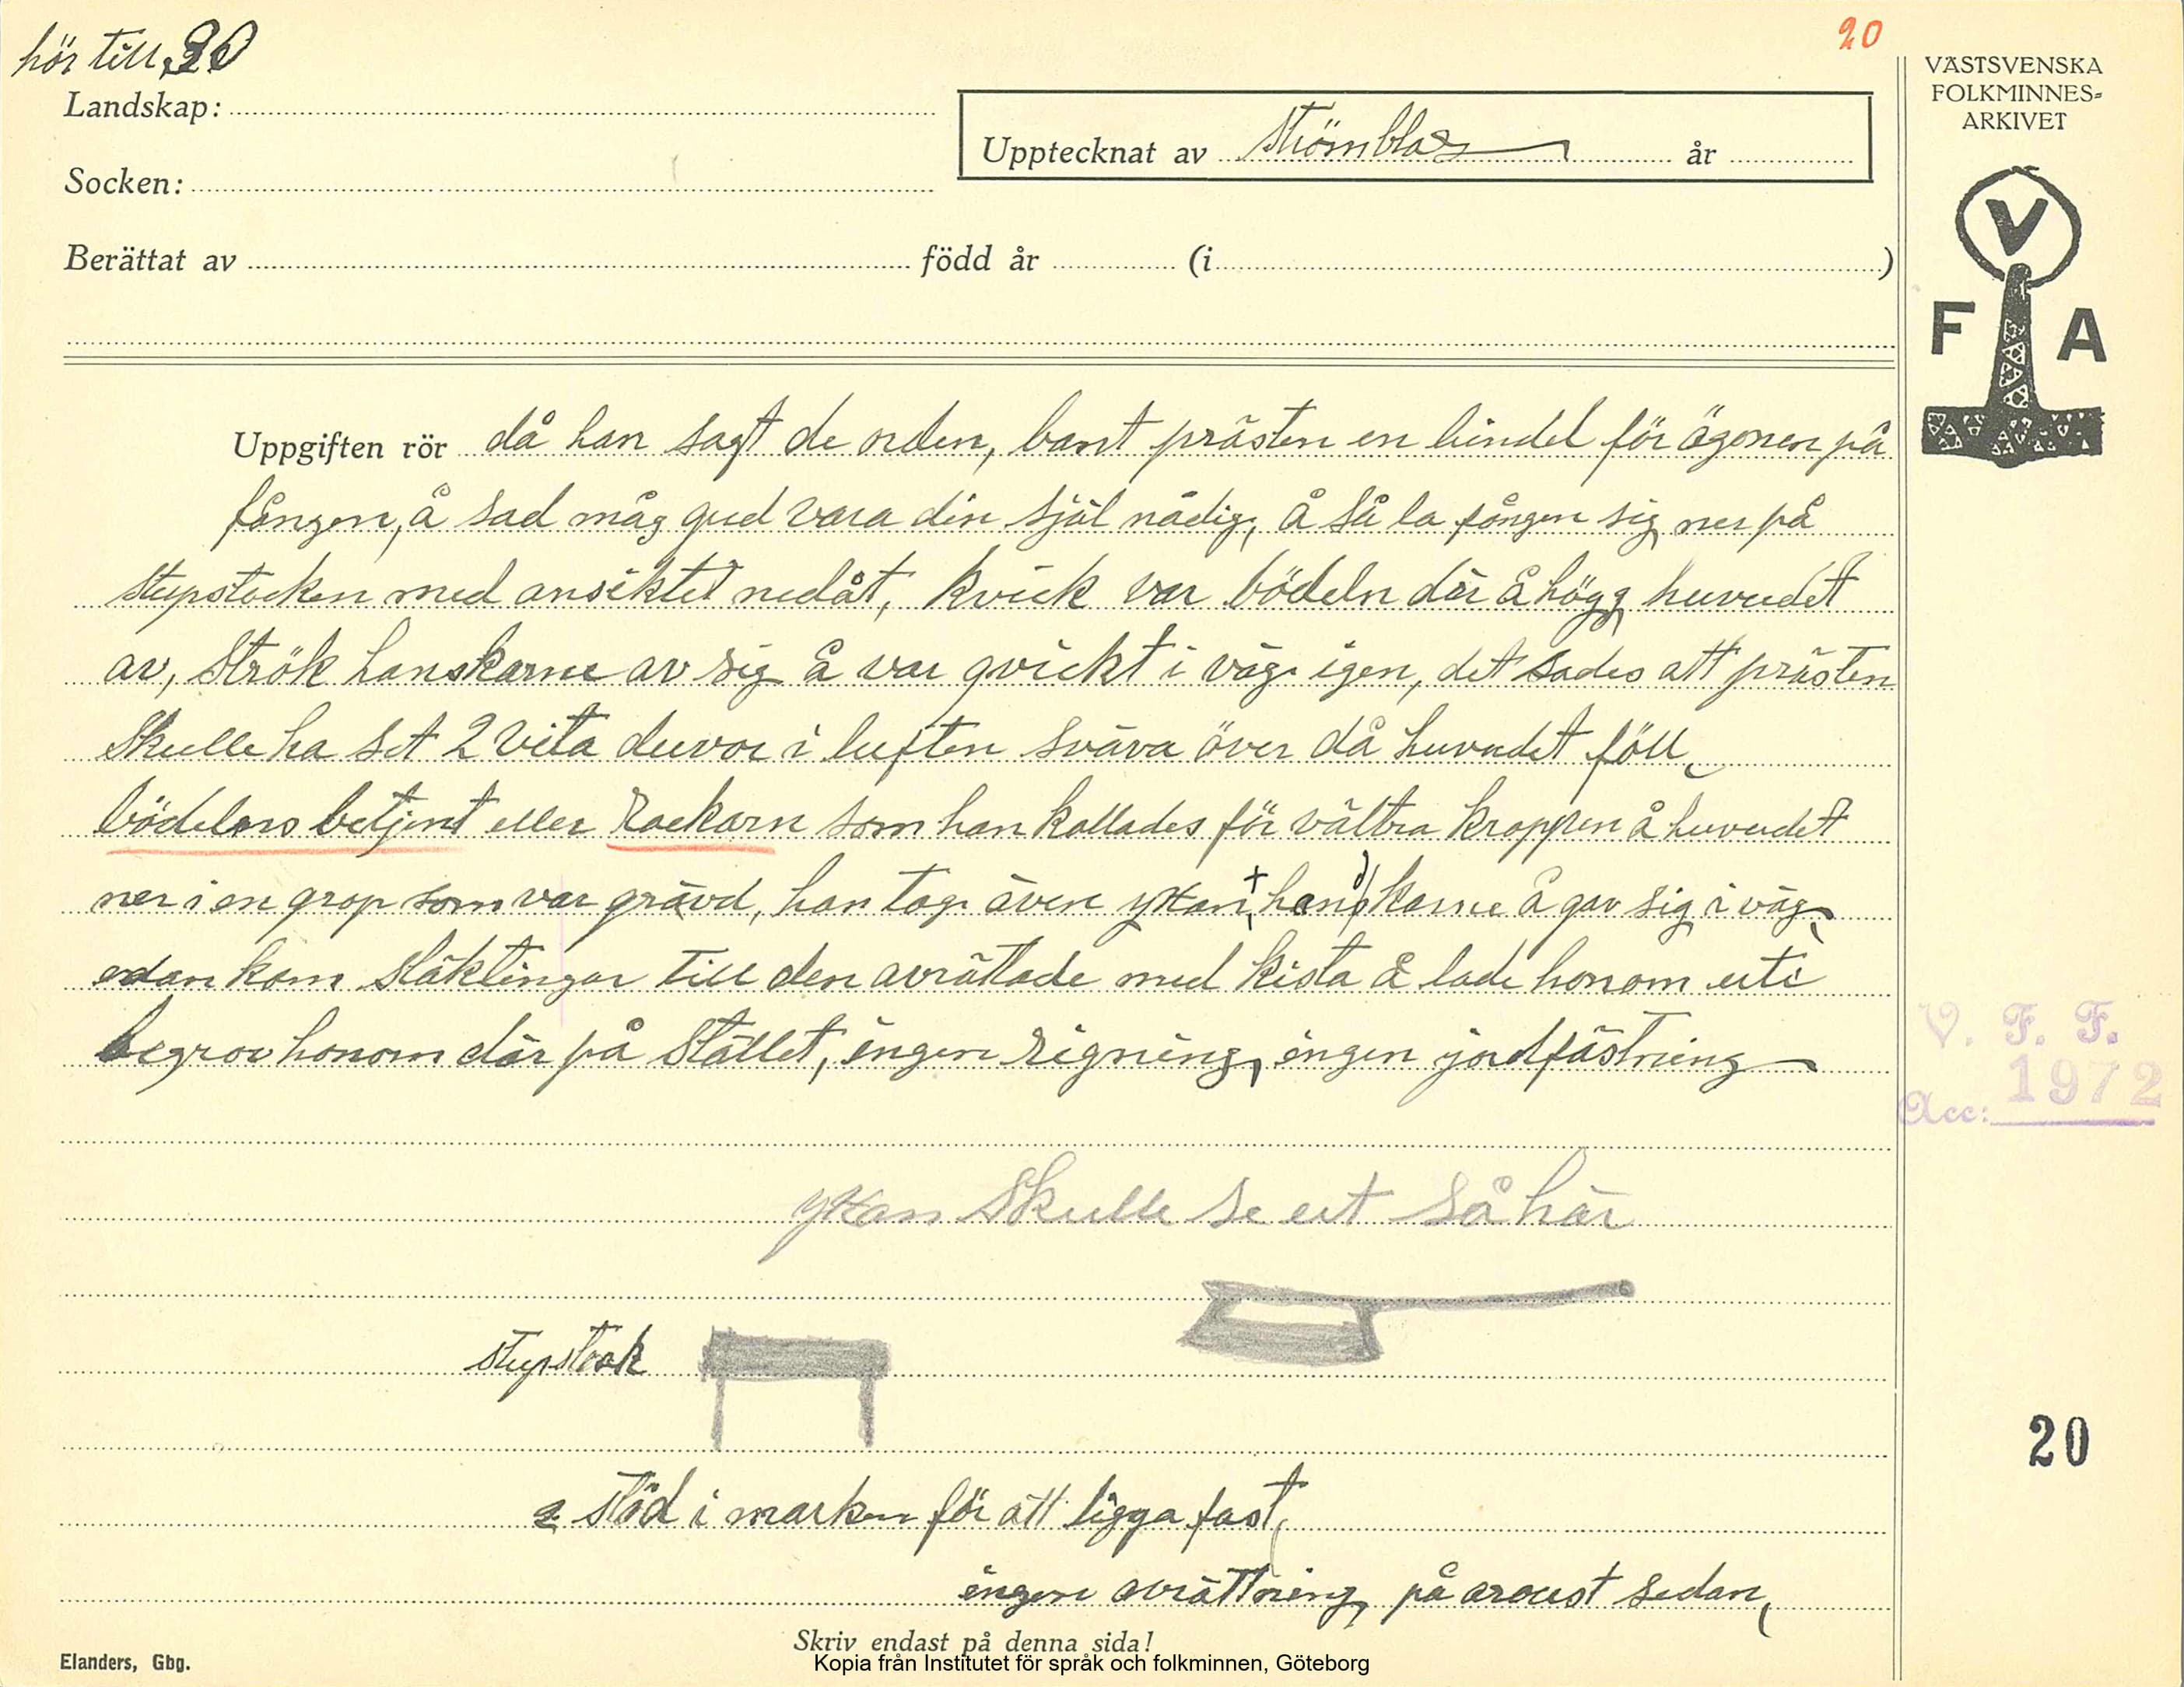 hör till 20
20
Landskap:
Upptecknat av Strömblad år
Socken:
Berättat av född år (i )
VÄSTSVENSKA
FOLKMINNES-
ARKIVET
V
F A
Uppgiften rör då han sagt de orden, bant prästen en bindel för ögonen på
fången, å sad måg gud vara din själ nådig, å så la fången sig ner på
stupstocken med ansiktet nedåt, kvick var bödeln där å högg huvudet
av, strök hanskarne av sig å var qvickt i väg igen, det sades att prästen
skulle ha set 2 vita duvor i luften sväva över då huvudet föll,
bödelns betjent eller Rackarn som han kallades för vältra kroppen å huvudet
ner i en grop som var grävd, han tog även yxan, + hanskarne å gav sig i väg
sedan kom släktingar till den avrättade med kista å lade honom uti
begrov honom där på stället, ingen rigning, ingen jordfästning
V. F. F.
Acc: 1972
yxan skulle se ut så här
stupstock
20
2 stöd i marken för att ligga fast,
ingen avrättning på aroust sedan,
Skriv endast på denna sida!
Elanders, Gbg.
Kopia från Institutet för språk och folkminnen, Göteborg